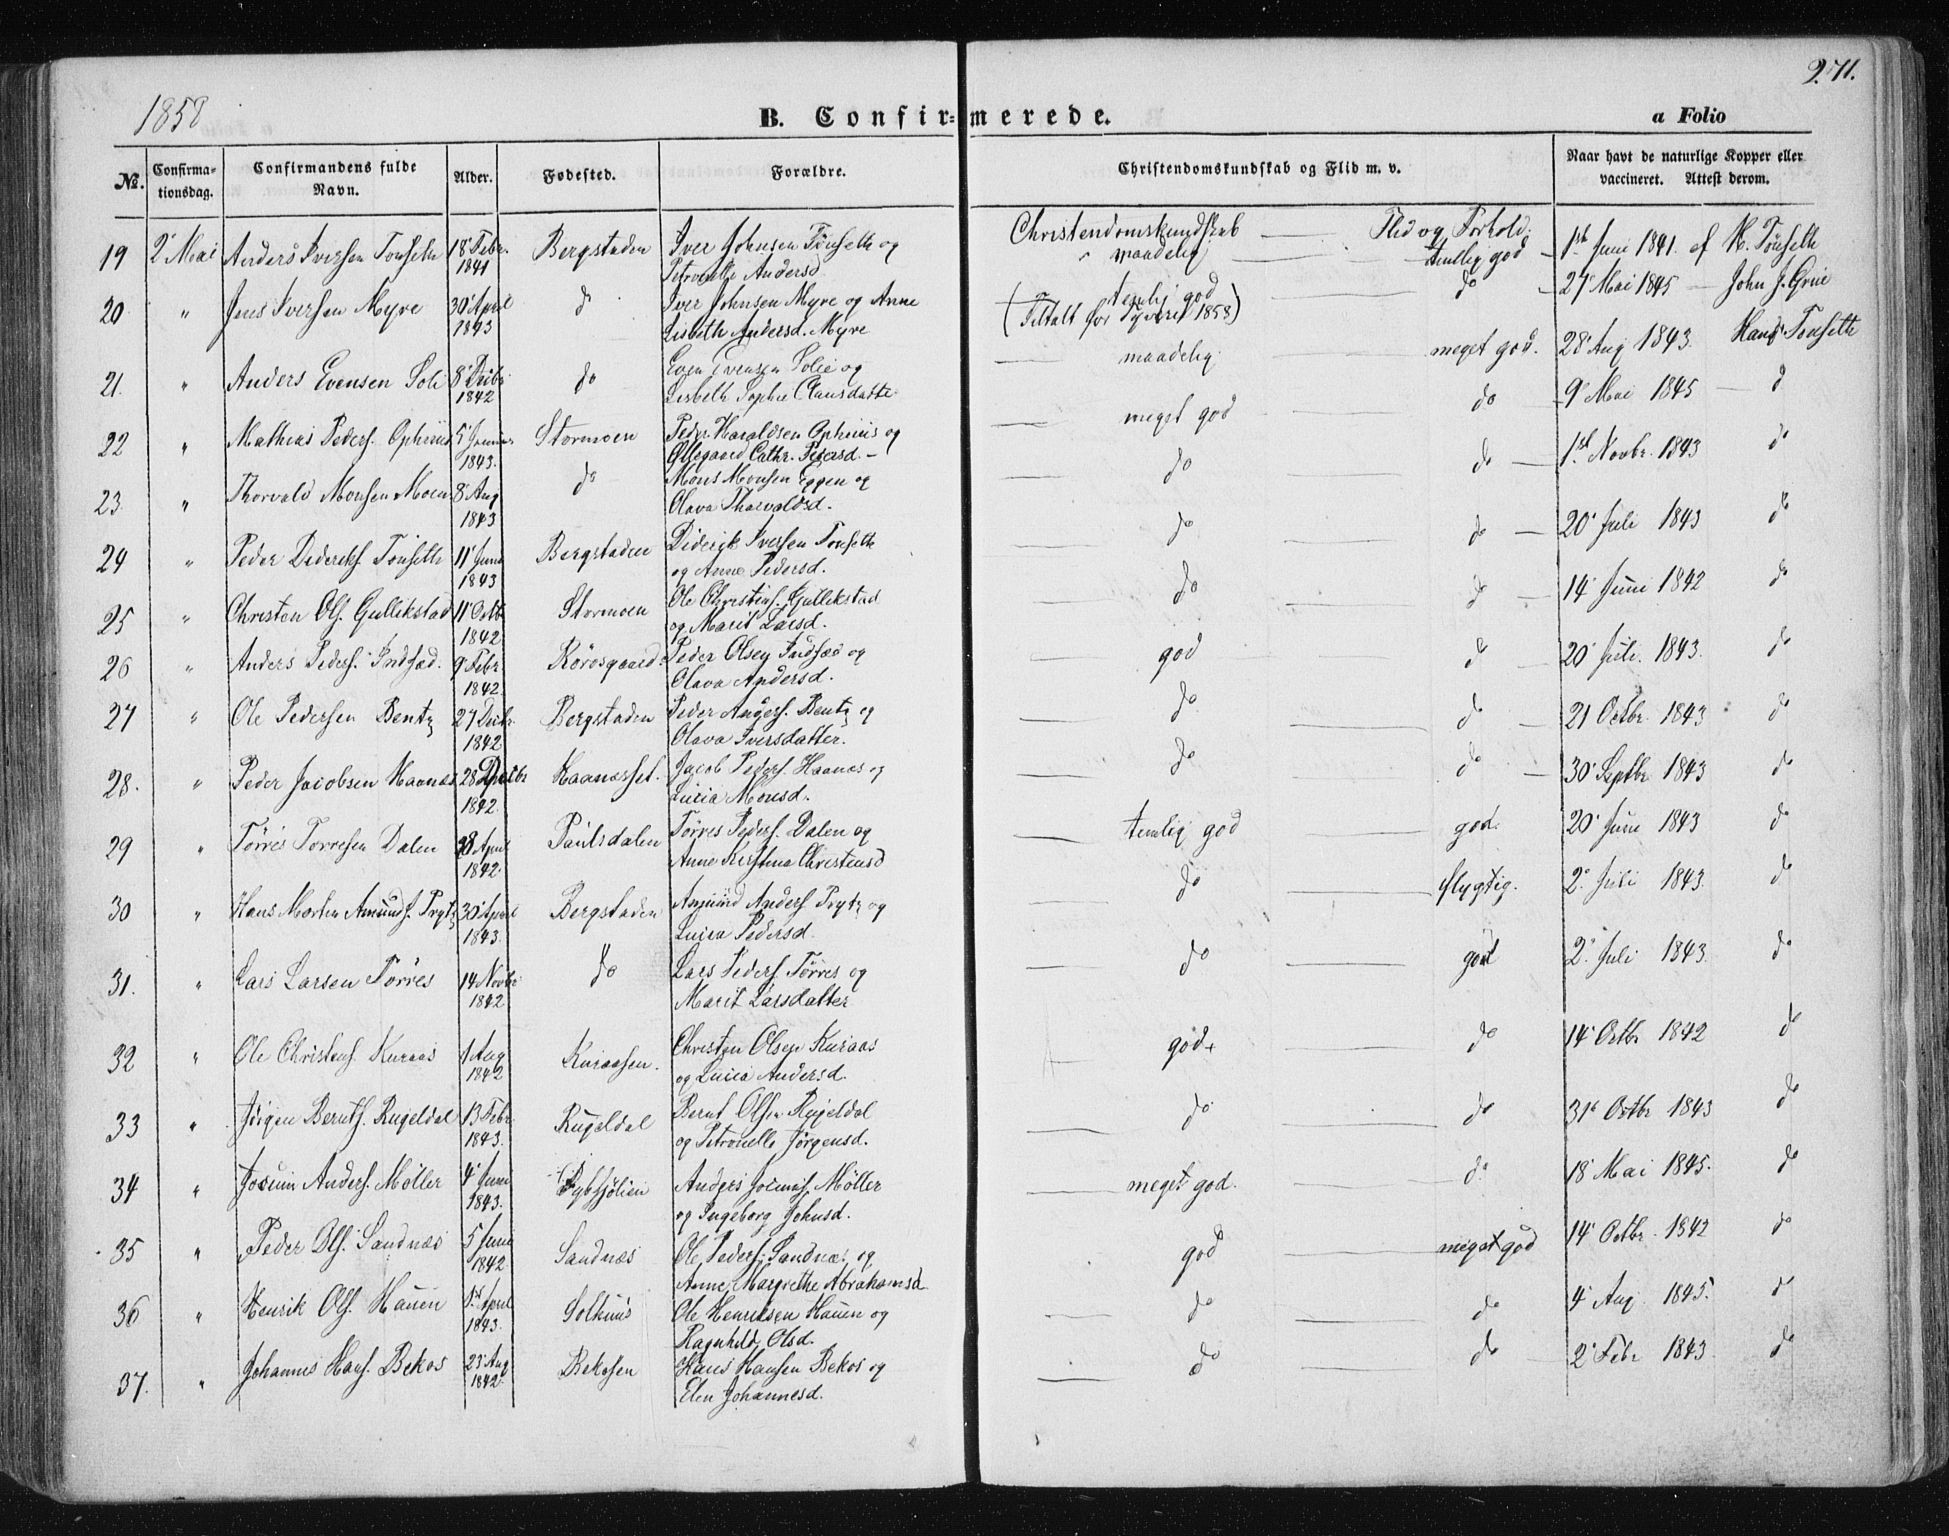 1858
B. Confirmerede.
a Folio
271.
№.
Confirmationsdag.
Confirmandens fulde Navn.
Alder.
Fødested.
Forældre.
Christendomskundskab og Flid m. v.
Naar havt de naturlige Kopper eller vaccineret. Attest derom.
Christendomskundskab — Flid og Forhold.
19 2' Mai Anders Iversen Tonseth 18' Febr. 1841 Bergstaden Iver Johnsen Tønseth og
Andersd maadelig — temlig god — 1st Juni 1841. af H. Tønseth
20 " Jens Iversen Myre 30' April 1843 do Iver Johnsen Myre og Anne
Lisbeth Andersd. Myre temlig god — do — 27' Mai 1845 — John J. Grue
(Tiltalt for Tyveri 1858)
21. " Anders Evensen Soli 8' Decbr 1842 do Even Evensen Solie og
Lisbeth Sophie Clausdatter — maadelig — meget god. 28' Aug 1843. Hans Tonseth
22 " Mathias Peders. Ophuus 5' 1843. Stormoen Peder Haraldsen Ophuus og
Ollegaard Cathr. Pedersd. — meget god — do — 9' Mai 1845 — do
23 " Thorvald Monsen Moen 8' Aug 1843 do Mons Monsen Eggen og
Olava Thorvaldsd. — do — do — 1st Novbr. 1843 do
24 " Peder Dideriks. Tonseth 11' Juni 1843 Bergstaden Diderik Iversen Tonseth
og Anne Pedersd. — do — do — 20' Juli 1843 do
25 " Christen Ols. Gullikstad 11' Octb 1842 Stormoen Ole Christens. Gullikstad
og Marit Larsd. — do — do — 14' Juni 1842 do
26 " Anders Peders. Indsæd. 9' Febr 1842. Rörosgaard. Peder Olsen Indsæd og
Olava Andersd. — god — do — 20' Juli. 1843. do
27 " Ole Pedersen Bentz 27' Decbr 1842 Bergstaden Peder Anders. Bentz og
Olava Iversdatter. — do — do — 21 Octbr 1843 do
28. " Peder Jacobsen Haanæs 28' 1842. Haanæsset. Jacob Peders. Haanæs og
Lucia Monsd. — do — do — 30' Septbr 1843 do
29 " Törres Torresen Dalen 28 April 1842. Paulsdalen Törres Peders. Dalen og
Anne Kirstina Christensd — temlig god — god. 20' Juni 1843 do
30 " Hans Morten Amunds. Prytz 30' April 1843. Bergstaden Asmund Anders. Prytz og
Lucia Pedersd. — do — flygtig. 2' Juli 1843. do
31. " Lars Larsen Törres 14 Novbr 1842 do Lars Peders. Törres og
Marit Larsdatter — do — god 2' Juli 1843. do
32 " Ole Christens. Kuraas 1 Aug 1842 Kuraasen. Christen Olsen Kuraas
og Lucia Andersd. — god — do 14' Octbr 1842 do
33 " Jörgen Bernts. Rugeldal 13 Febr. 1843. Rugeldal Bernt Olsen Rugeldal
og Petronelle Jörgensd. — do — do 31' Octbr 1843 do
34 " Jocum Anders. Möller 4' Juni 1843. Anders Jocums. Möller
og Ingeborg Johnsd. — meget god. — do 18' Mai 1845. do
35 " Peder Ols. Sandnæs 5 Juni 1842 Sandnæs Ole Peders. Sandnæs og
Anne Margrethe Abrahamsd — god — meget god 14' Octbr. 1842 do
36 " Henrik Ols. Hauen 1st April 1843. Solhuus Ole Henriksen Hauen og
Ragnhild Olsd. — do — do 4' Aug 1845. do
37. " Johannes Hans. Bekos 23' Aug 1842. Bekosen Hans Hansen Bekos og
Elen Johannesd. — do — do 2' Febr 1843. do